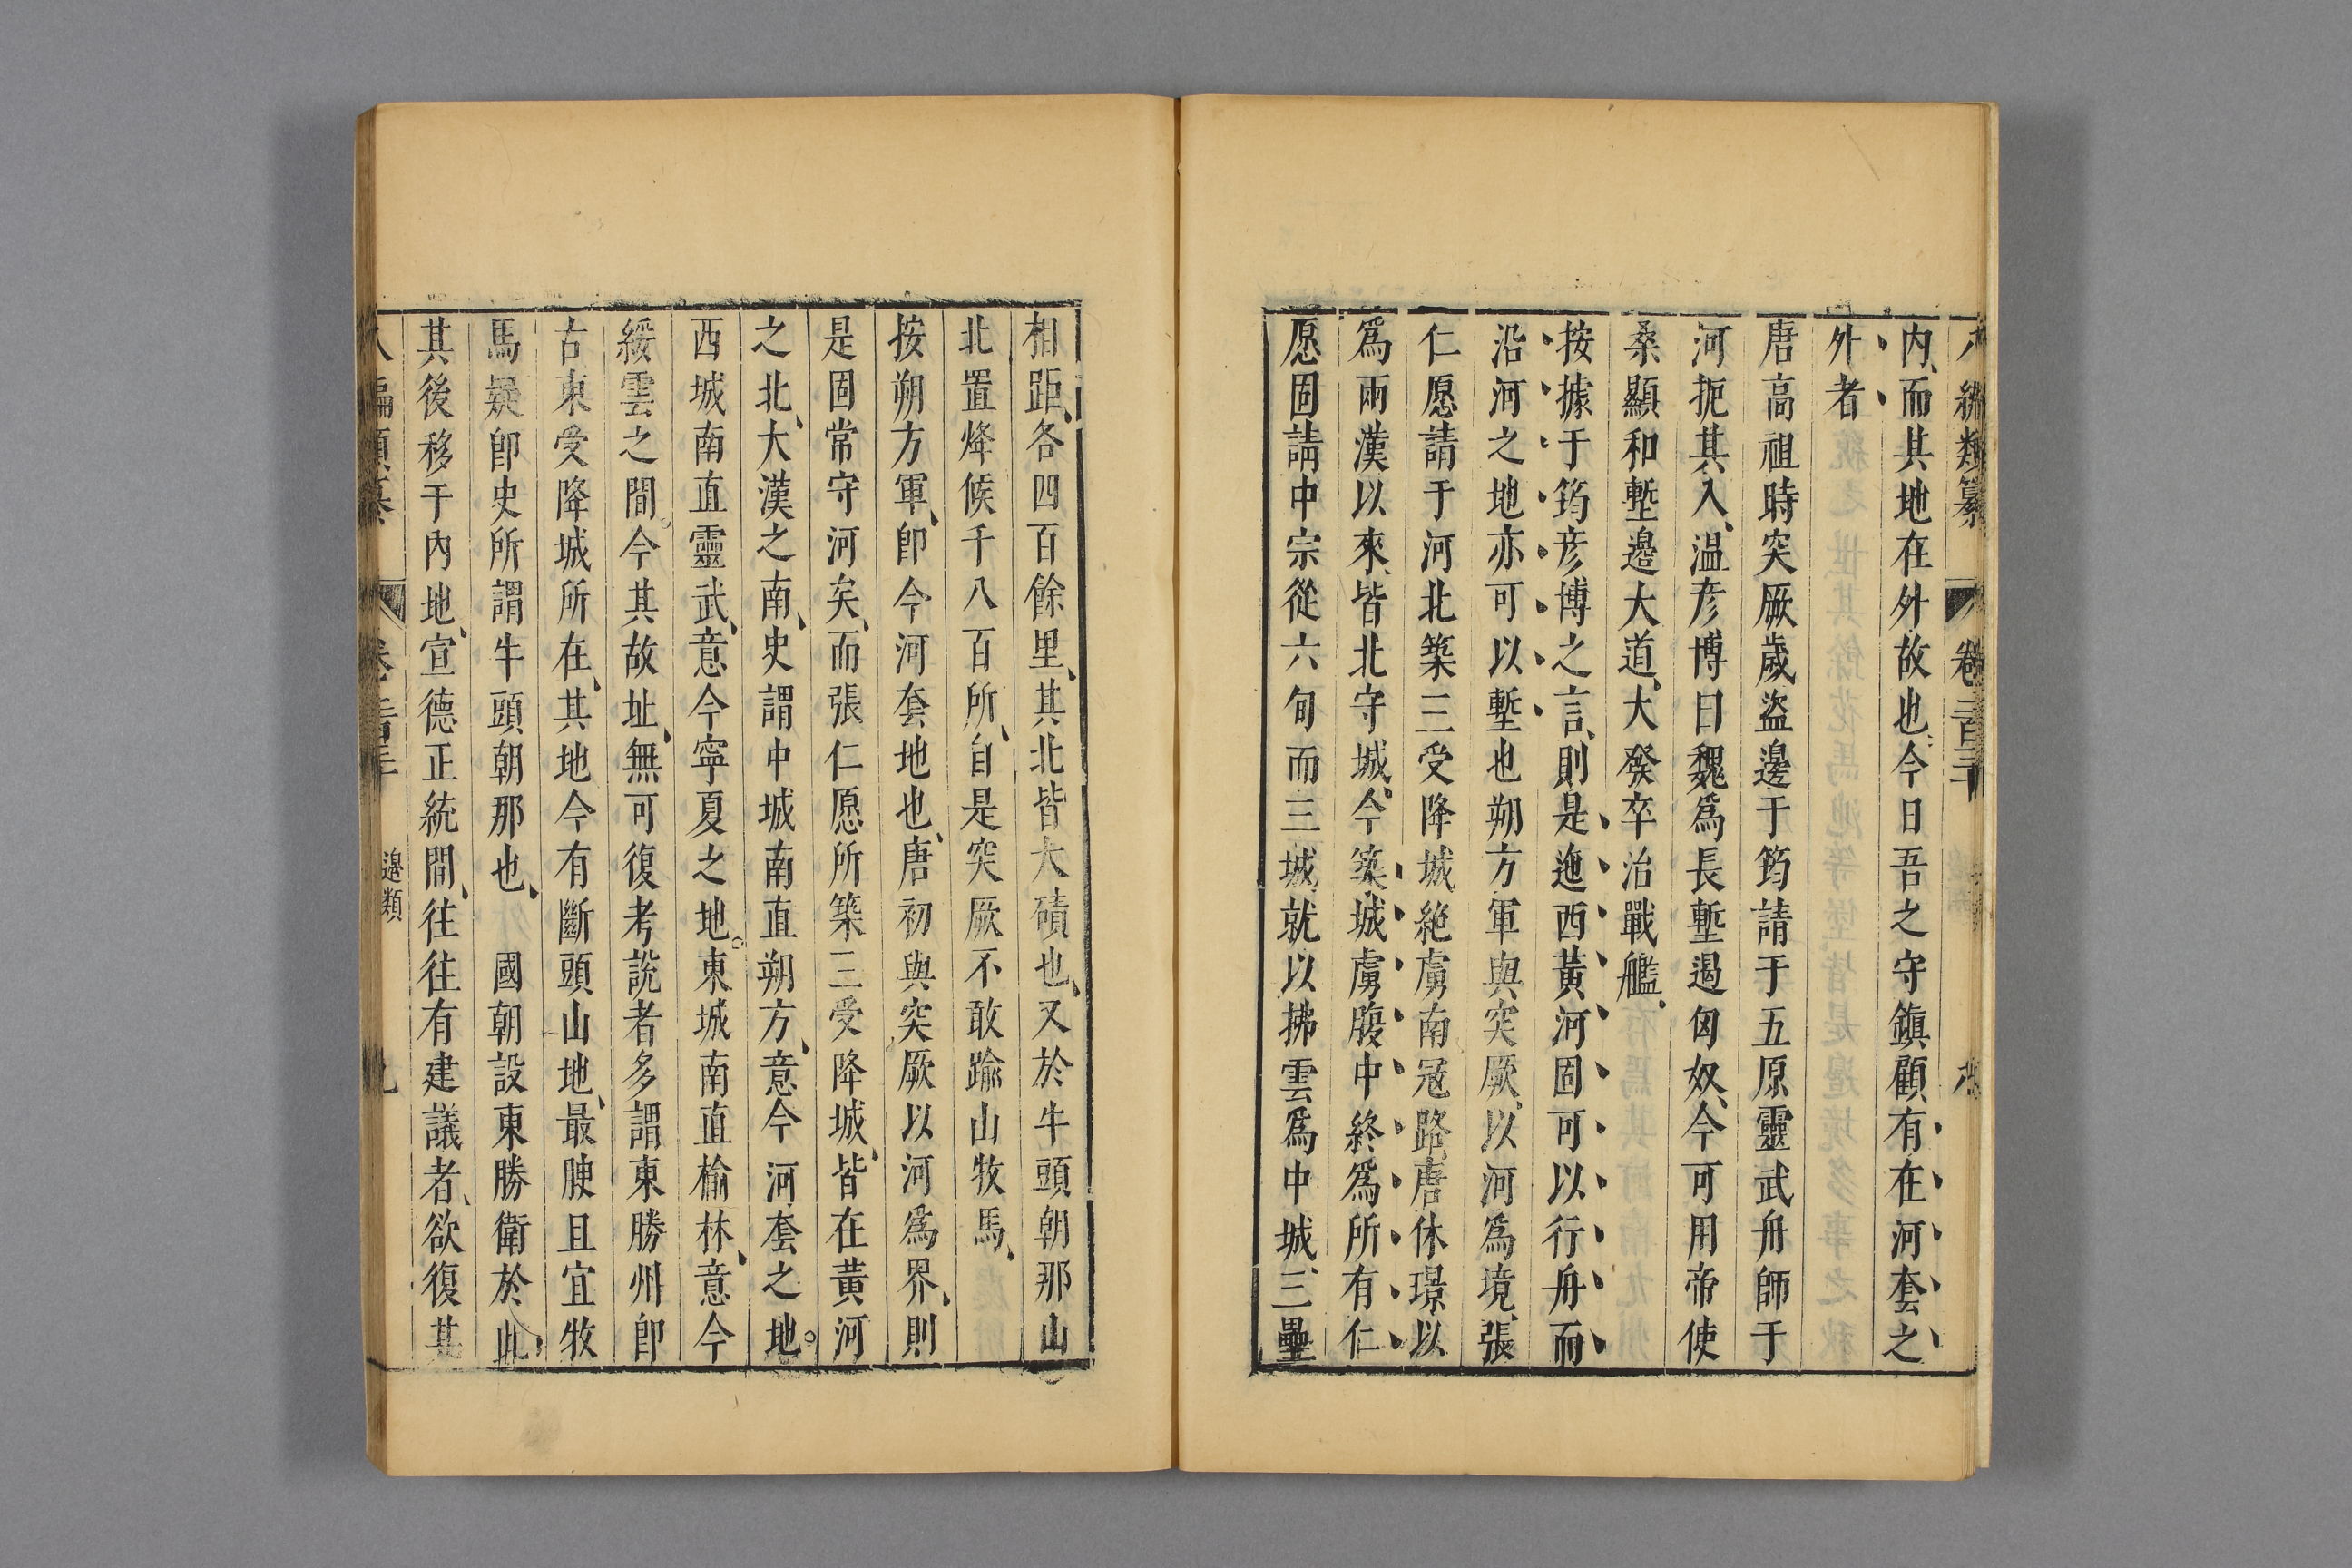 八編類纂 卷二百三十
内而其地在外故也今日吾之守鎮顧有在河套之
外者
唐高祖時突厥歲盜邊于筠請于五原靈武舟師于
河扼其入温彦博曰魏爲長塹遏匈奴今可用帝使
桑顯和塹邊大道大發卒治戰艦
按據于筠彦博之言則是迤西黃河固可以行舟而
沿河之地亦可以塹也朔方軍與突厥以河爲境張
仁愿請于河北築三受降城絶虜南冦路唐休璟以
爲兩漢以來皆北守城今築城虜腹中終爲所有仁
愿固請中宗從六旬而三城就以拂雲爲中城三壘
相距各四百餘里其北皆大磧也又於牛頭朝那山
北置烽候千八百所自是突厥不敢踰山牧馬
按朔方軍卽今河套地也唐初與突厥以河爲界則
是固常守河矣而張仁愿所築三受降城皆在黄河
之北大漠之南史謂中城南直朔方意今河套之地
西城南直靈武意今寧夏之地東城南直榆林意今
綏雲之間今其故址無可復考説者多謂東勝州卽
古東受降城所在其地今有斷頭山地最腴且宜牧
馬疑卽史所謂牛頭朝那也 國朝設東勝衛於此
其後移于内地宣德正統間往往有建議者欲復其
八編類纂 卷二百三十 邊類 九